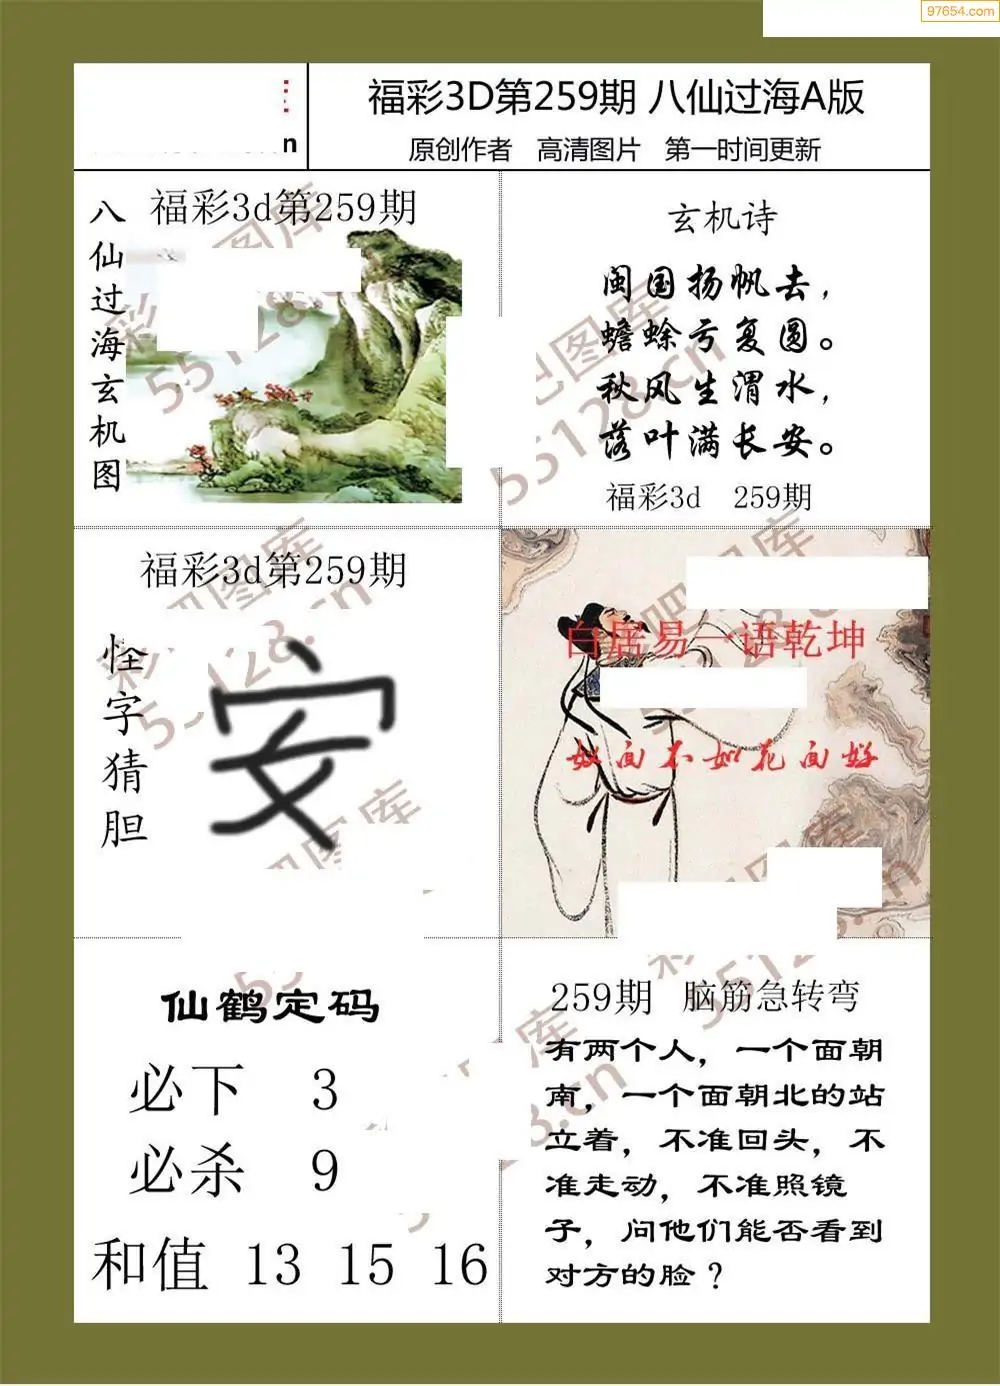 97654.com
福彩3D第259期 八仙过海A版
原创作者 高清图片 第一时间更新
n
八仙过海玄机图
福彩3d第259期
玄机诗
闽国扬帆去，
蟾蜍亏复圆。
秋风生渭水，
落叶满长安。
福彩3d 259期
福彩3d第259期
怪字猜胆
安
白居易一语乾坤
奴面不如花面好
仙鹤定码
必下 3
必杀 9
和值 13 15 16
259期 脑筋急转弯
有两个人，一个面朝
南，一个面朝北的站
立着，不准回头，不
准走动，不准照镜
子，问他们能否看到
对方的脸？
55128.cn